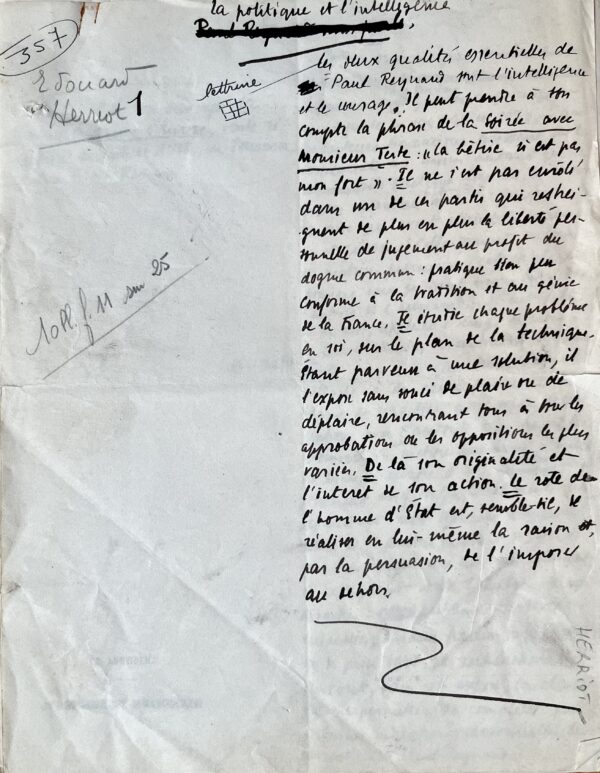 La politique et l'intelligence
357
Edouard
Herriot 1
lettrine
Les deux qualités essentielles de
Paul Reynaud sont l'intelligence
et le courage. Il peut prendre à son
compte la phrase de la Soirée avec
Monsieur Teste : « la bêtise n'est pas
mon fort ». Il ne s'est pas enrôlé
dans un de ces partis qui restrei-
gnent de plus en plus la liberté per-
sonnelle de jugement au profit du
dogme commun : pratique bien peu
conforme à la tradition et au génie
de la France. Il étudie chaque problème
en soi, sur le plan de la technique.
Étant parvenu à une solution, il
l'expose sans souci de plaire ou de
déplaire, rencontrant tour à tour les
approbations ou les oppositions les plus
variées. De là son originalité et
l'interet de son action. Le role de
l'homme d'État est, semble-t-il, de
réaliser en lui-même la raison et,
par la persuasion, de l'imposer
au dehors.
11 sur 25
HERRIOT